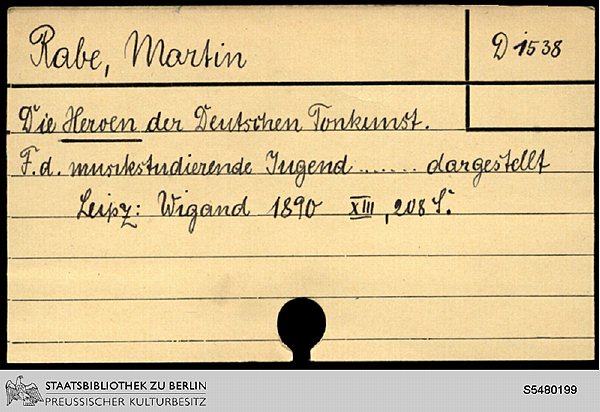 Rabe, Martin
D 1538
Die Heroen der Deutschen Tonkunst.
F. d. musikstudierende Jugend ....... dargestellt
Leipz: Wigand 1890 XIII, 208 S.
STAATSBIBLIOTHEK ZU BERLIN
PREUSSISCHER KULTURBESITZ
S5480199